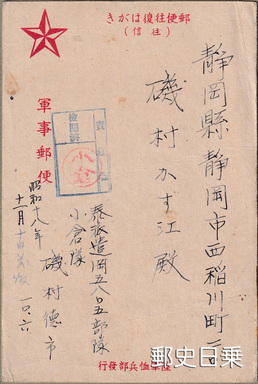 郵便往復はがき
(往信)
静岡縣静岡市西稲川町二ノ
磯村かず江殿
軍事郵便
検閲済
小倉
泰派遣岡五八〇五部隊
小倉隊
磯村德市
昭和十八年
十二月
陸軍恤兵部發行
郵史日乗